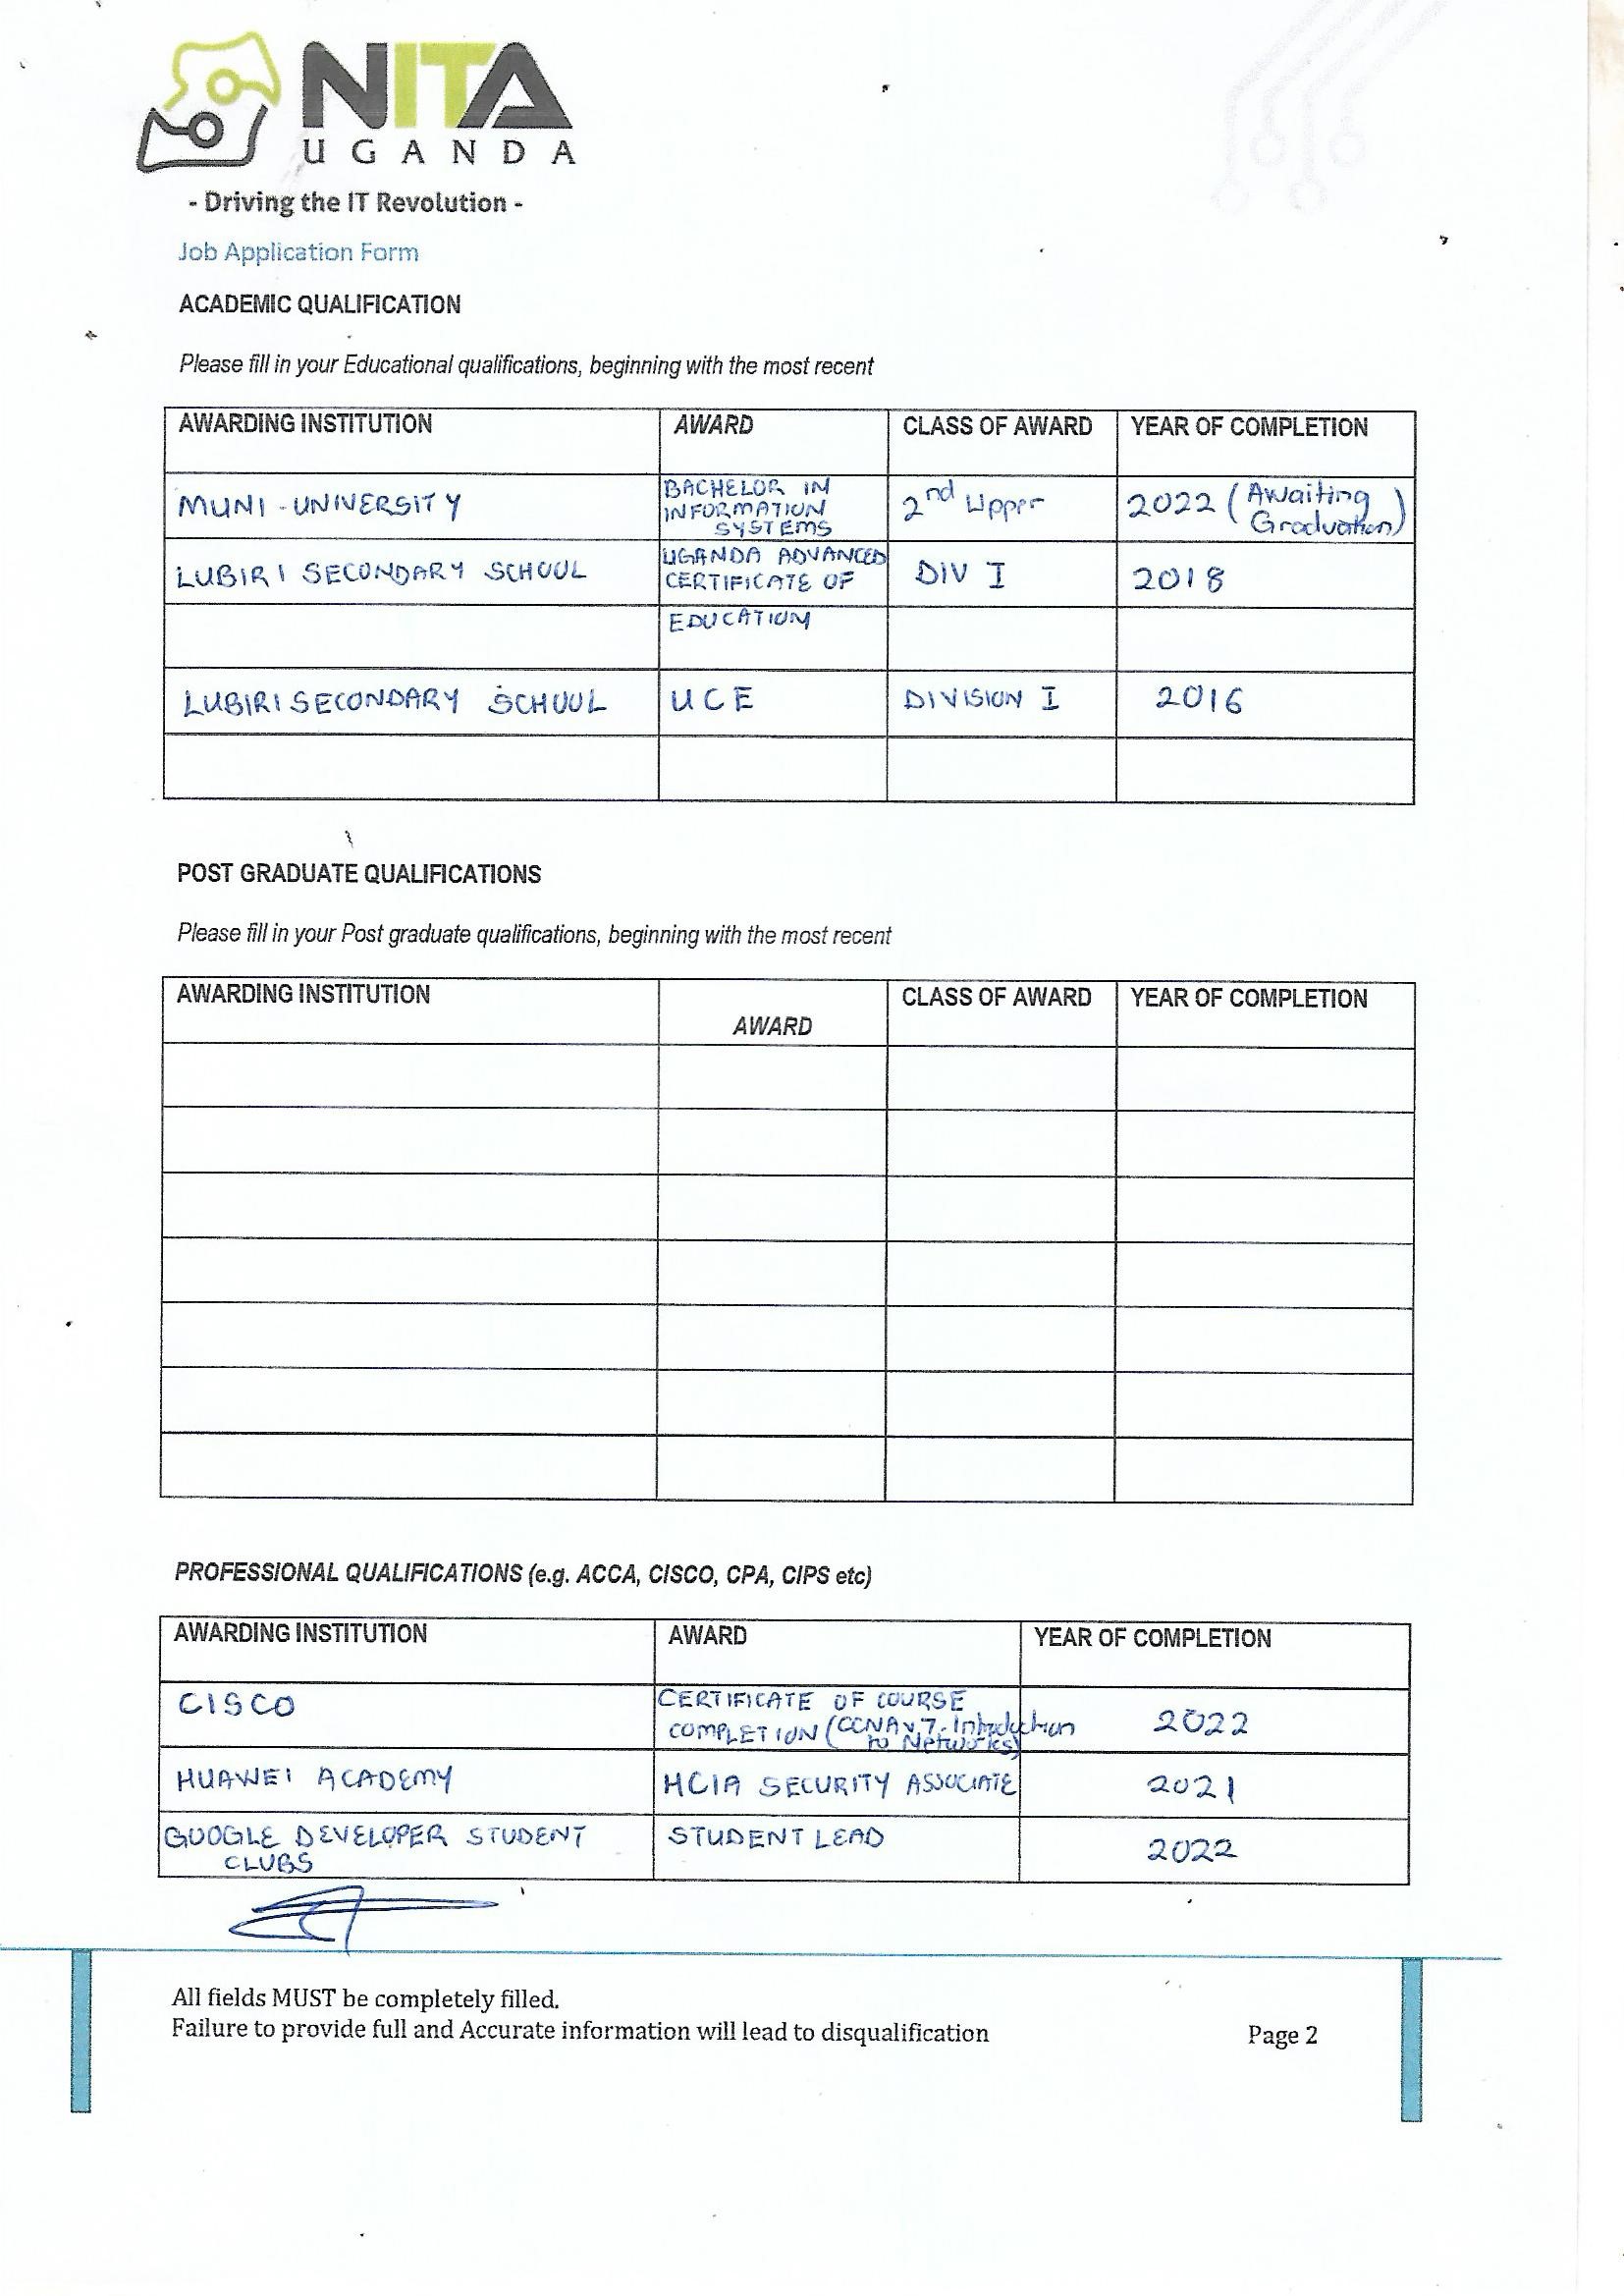 NITA
UGANDA
- Driving the IT Revolution -
Job Application Form
ACADEMIC QUALIFICATION
Please fill in your Educational qualifications, beginning with the most recent
AWARDING INSTITUTION AWARD CLASS OF AWARD YEAR OF COMPLETION
MUNI-UNIVERSITY BACHELOR IN INFORMATION SYSTEMS 2nd Upper 2022 (Awaiting Graduation)
LUBIRI SECONDARY SCHOOL UGANDA ADVANCED CERTIFICATE OF DIV I 2018
EDUCATION
LUBIRI SECONDARY SCHOOL UCE DIVISION I 2016
POST GRADUATE QUALIFICATIONS
Please fill in your Post graduate qualifications, beginning with the most recent
AWARDING INSTITUTION AWARD CLASS OF AWARD YEAR OF COMPLETION
PROFESSIONAL QUALIFICATIONS (e.g. ACCA, CISCO, CPA, CIPS etc)
AWARDING INSTITUTION AWARD YEAR OF COMPLETION
CISCO CERTIFICATE OF COURSE COMPLETION (CCNAv7-Introduction to Networks) 2022
HUAWEI ACADEMY HCIA SECURITY ASSOCIATE 2021
GOOGLE DEVELOPER STUDENT CLUBS STUDENT LEAD 2022
All fields MUST be completely filled.
Failure to provide full and Accurate information will lead to disqualification
Page 2